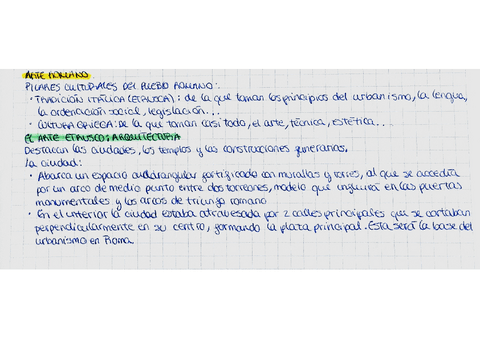 ARTE ROMANO
PILARES CULTURALES DEL PUEBLO ROMANO:
· TRADICIÓN ITÁLICA (ETRUSCA): de la que toman los principios del urbanismo, la lengua,
la ordenación social, legislación...
· CULTURA GRIEGA: De la que toman casi todo, el arte, técnica, estética...
EL ARTE ETRUSCO: ARQUITECTURA
Destacan las ciudades, los templos y las construcciones funerarias.
La ciudad:
· Abarca un espacio cuadrangular fortificado con murallas y torres, al que se accedía
por un arco de medio punto entre dos torreones, modelo que influirá en las puertas
monumentales y los arcos de triunfo romano
· En el interior la ciudad estaba atravesada por 2 calles principales que se cortaban
perpendicularmente en su centro, formando la plaza principal. Esta será la base del
urbanismo en Roma.